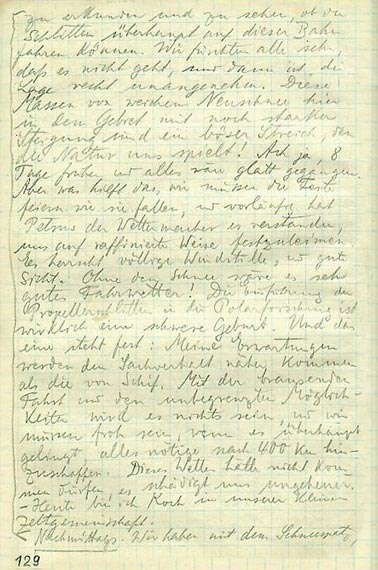 zu erkunden und zu sehen, ob die
Schlitten überhaupt auf dieser Bahn
fahren können. Wir fürchten alle sehr,
daß es nicht geht, und dann ist die
Lage recht unangenehm. Diese
Massen von weichem Neuschnee hier
in dem Gebiet mit noch starker
Steigung sind ein böser Streich, den
die Natur uns spielt! Ach ja, 8
Tage früher, u alles wäre glatt gegangen.
Aber was hilft das, wir müssen die Feste
feiern wie sie fallen, u vorläufig hat
Petrus der Wettermacher es verstanden,
uns auf raffinierte Weise festzuleimen.
Es herrscht völlige Windstille, u gute
Sicht. Ohne den Schnee wäre es sehr
gutes Fahrwetter! Die Einführung der
Propellerschlitten in die Polarforschung ist
wirklich eine schwere Geburt. Und das
eine steht fest: Meine Erwartungen
werden dem Sachverhalt näher kommen
als die von Schif. Mit der brausenden
Fahrt u den unbegrenzten Möglich-
keiten wird es nichts sein, u wir
müssen froh sein, wenn es überhaupt
gelingt, alles nötige nach 400 km hin-
zuschaffen. Dieses Wetter hätte nicht kom-
men dürfen, es schädigt uns ungeheuer.
- Heute bei ich Koch in unserer kleinen
Zeltgemeinschaft.
Nachmittags. Wir haben mit dem
129